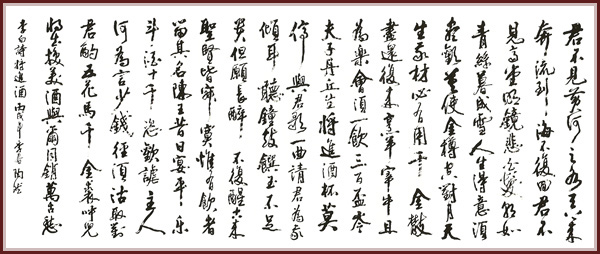 君不見黃河之水天上來
奔流到海不復回君不
見高堂明鏡悲白髮朝如
青絲暮成雪人生得意須
盡歡莫使金樽空對月天
生我材必有用千金散
盡還復來烹羊宰牛且
為樂會須一飲三百盃岑
夫子丹丘生將進酒杯莫
停與君歌一曲請君為我
傾耳聽鐘鼓饌玉不足
貴但願長醉不復醒古來
聖賢皆寂寞惟有飲者
留其名陳王昔日宴平樂
斗酒十千恣歡謔主人
何為言少錢徑須沽取對
君酌五花馬千金裘呼兒
將出換美酒與爾同銷萬古愁
李白詩將進酒丙戌年